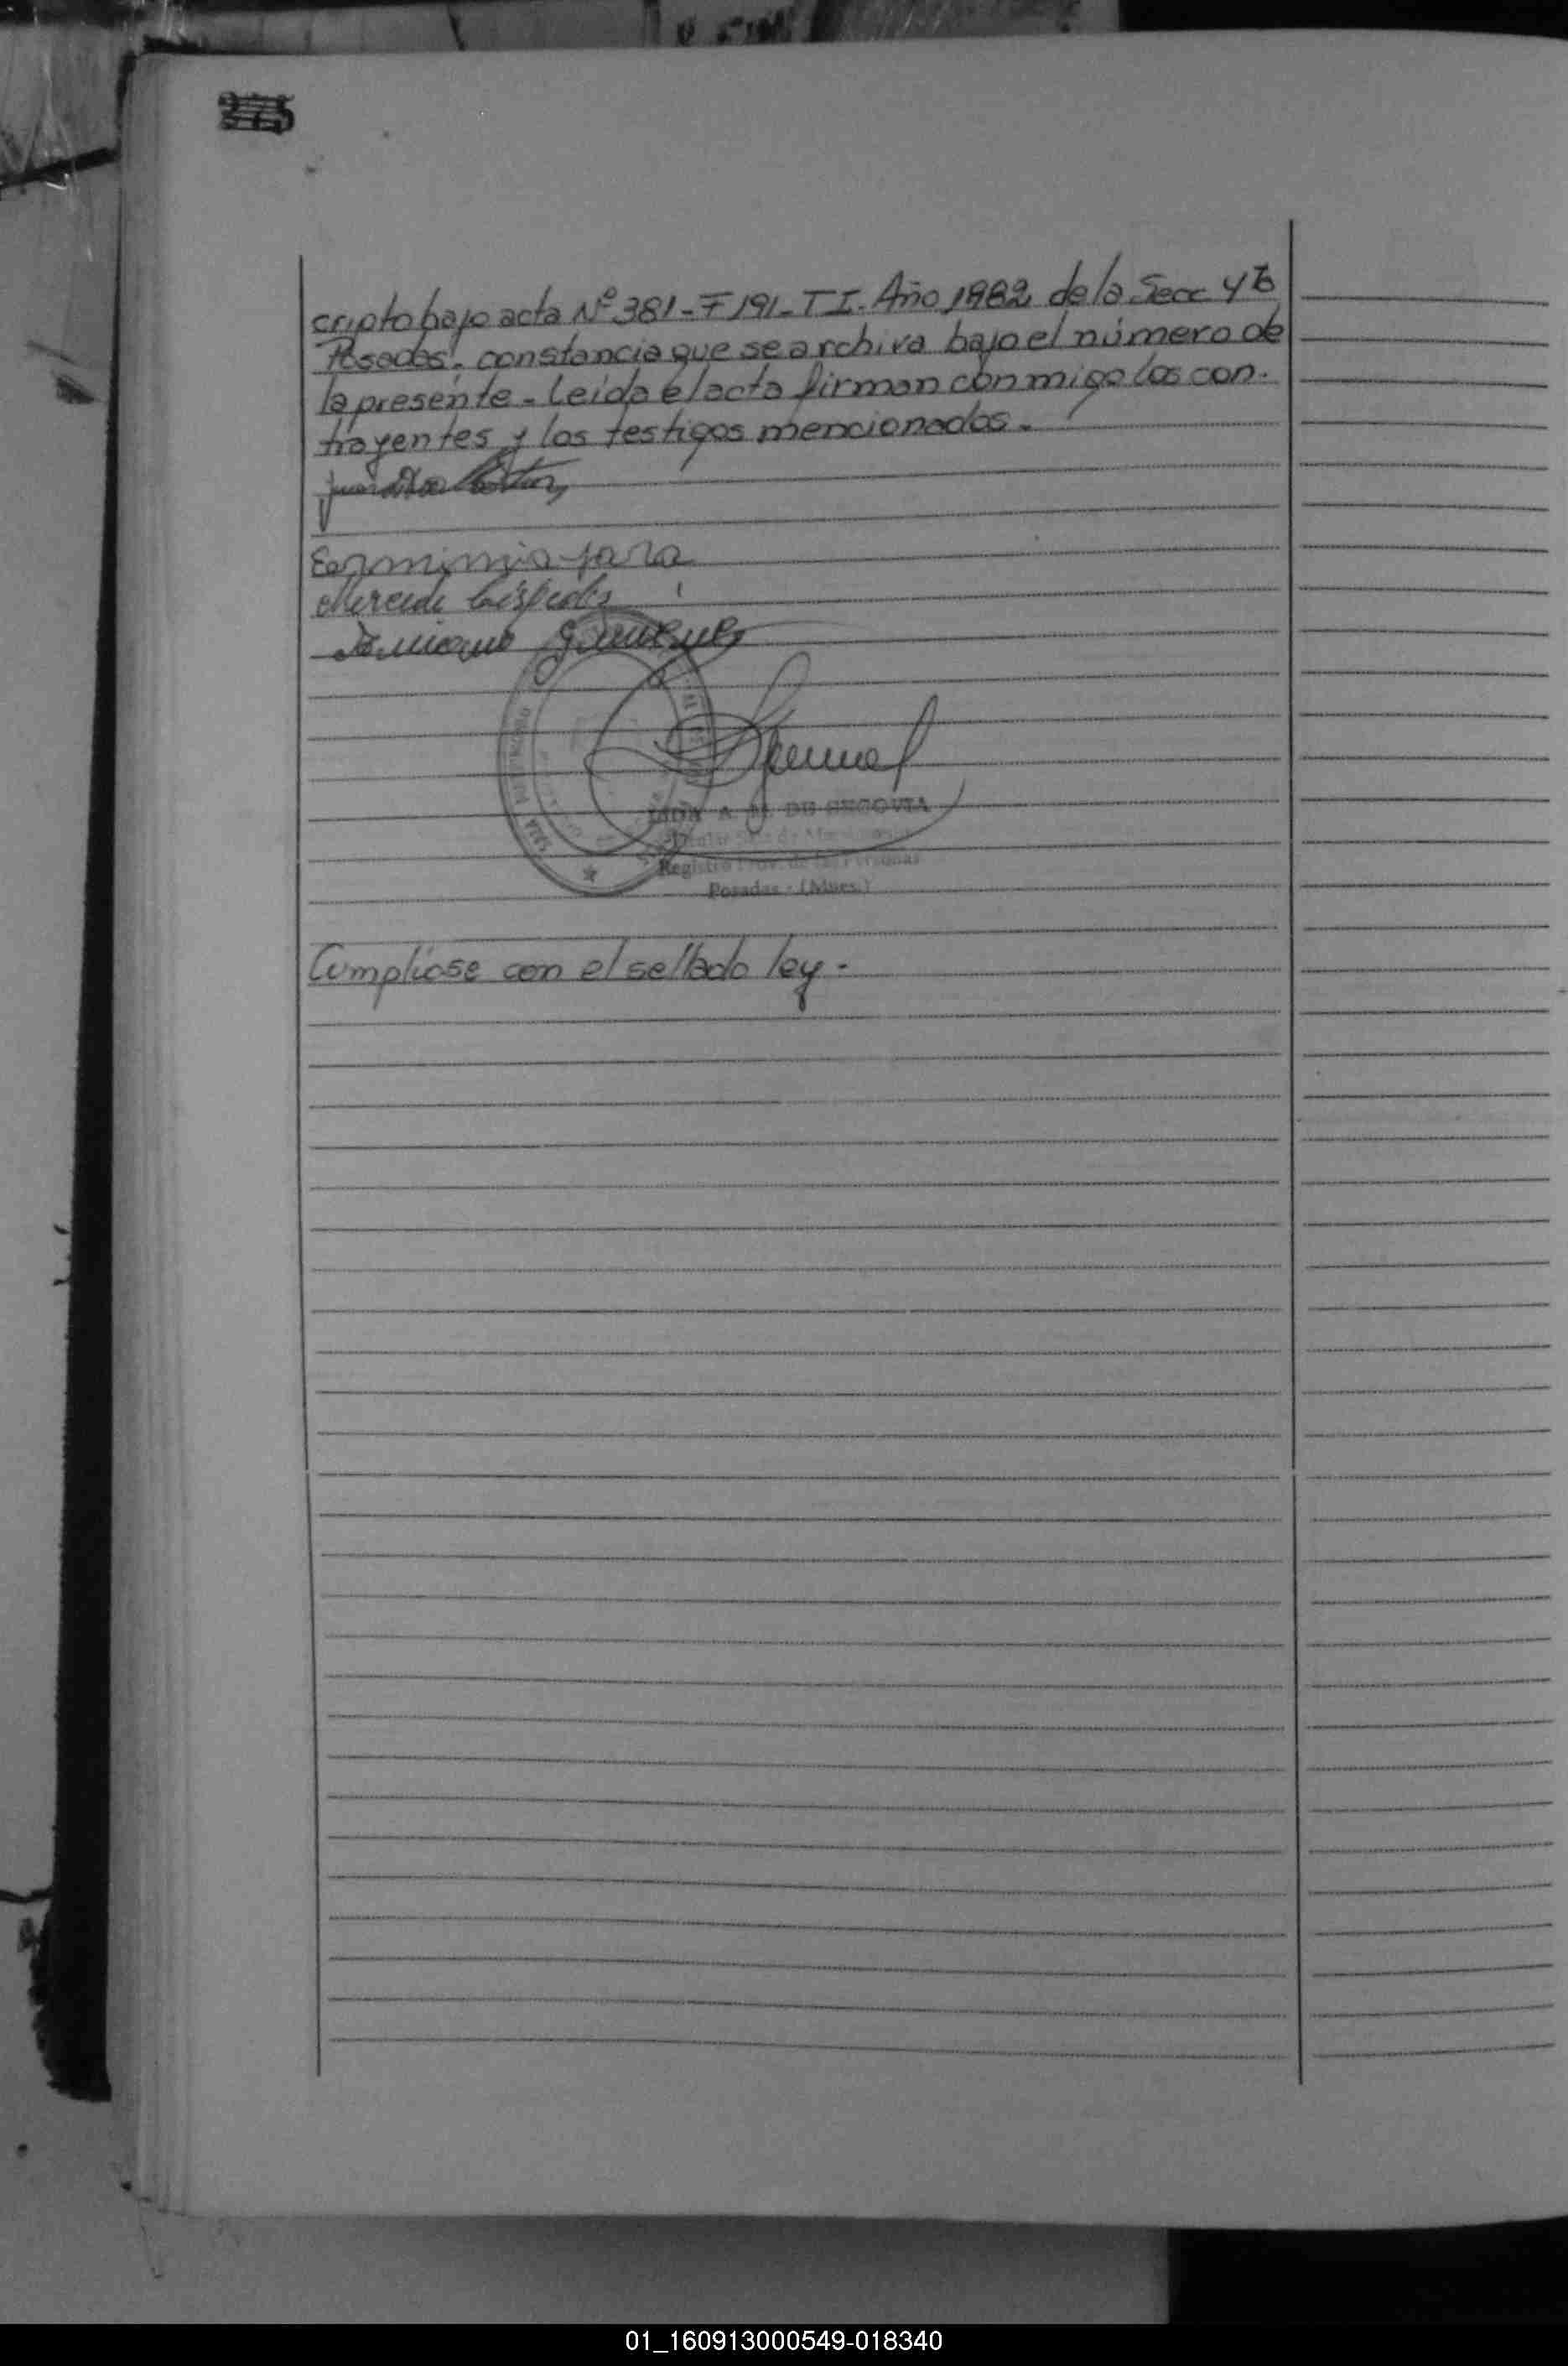 275
cripto bajo acta Nº 381-F 191-T I. Año 1982 de la Secc 4ta
Posadas, constancia que se archiva bajo el número de
la presente - Leída el acta firman conmigo los con-
trayentes y los testigos mencionados.-
Erminia Jara
Mercede Céspedes
A. M. DE SEGOVIA
Registro Prov. de las Personas
Posadas - (Mnes.)
Cumplióse con el sellado ley -
01_160913000549-018340